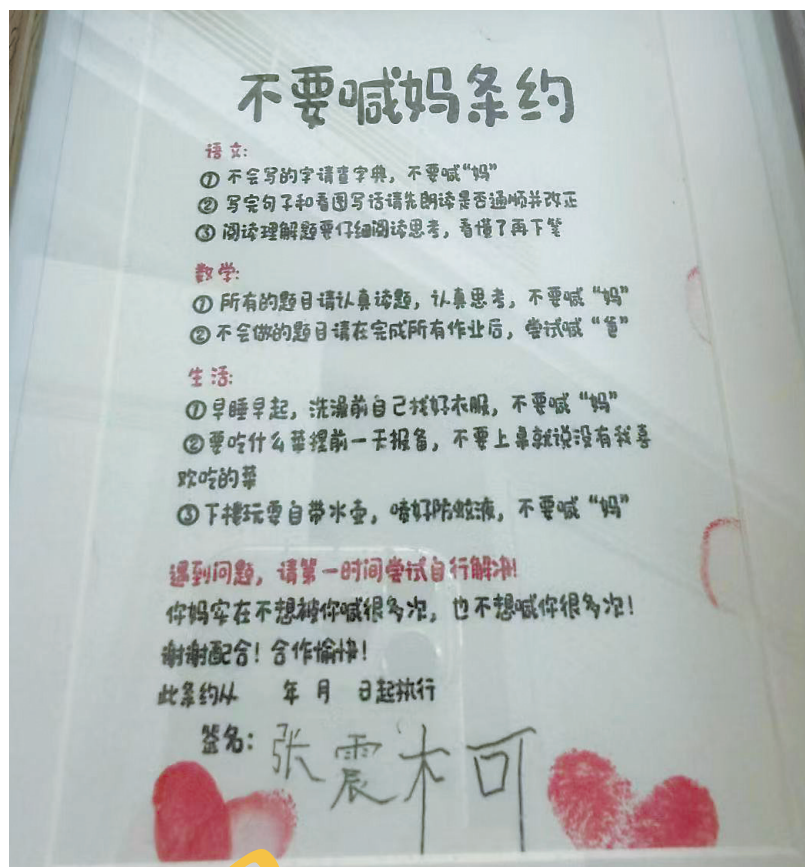 不要喊妈条约
语文:
① 不会写的字请查字典，不要喊“妈”
② 写完句子和看图写话请先朗读是否通顺并改正
③ 阅读理解题要仔细阅读思考，看懂了再下笔
数学:
① 所有的题目请认真读题，认真思考，不要喊“妈”
② 不会做的题目请在完成所有作业后，尝试喊“爸”
生活:
①早睡早起，洗澡前自己找好衣服，不要喊“妈”
②要吃什么菜提前一天报备，不要上桌就说没有我喜
欢吃的菜
③下楼玩耍自带水壶，喷好防蚊液，不要喊“妈”
遇到问题，请第一时间尝试自行解决!
你妈实在不想被你喊很多次，也不想喊你很多次!
谢谢配合! 合作愉快!
此条约从 年 月 日起执行
签名: 张震木可